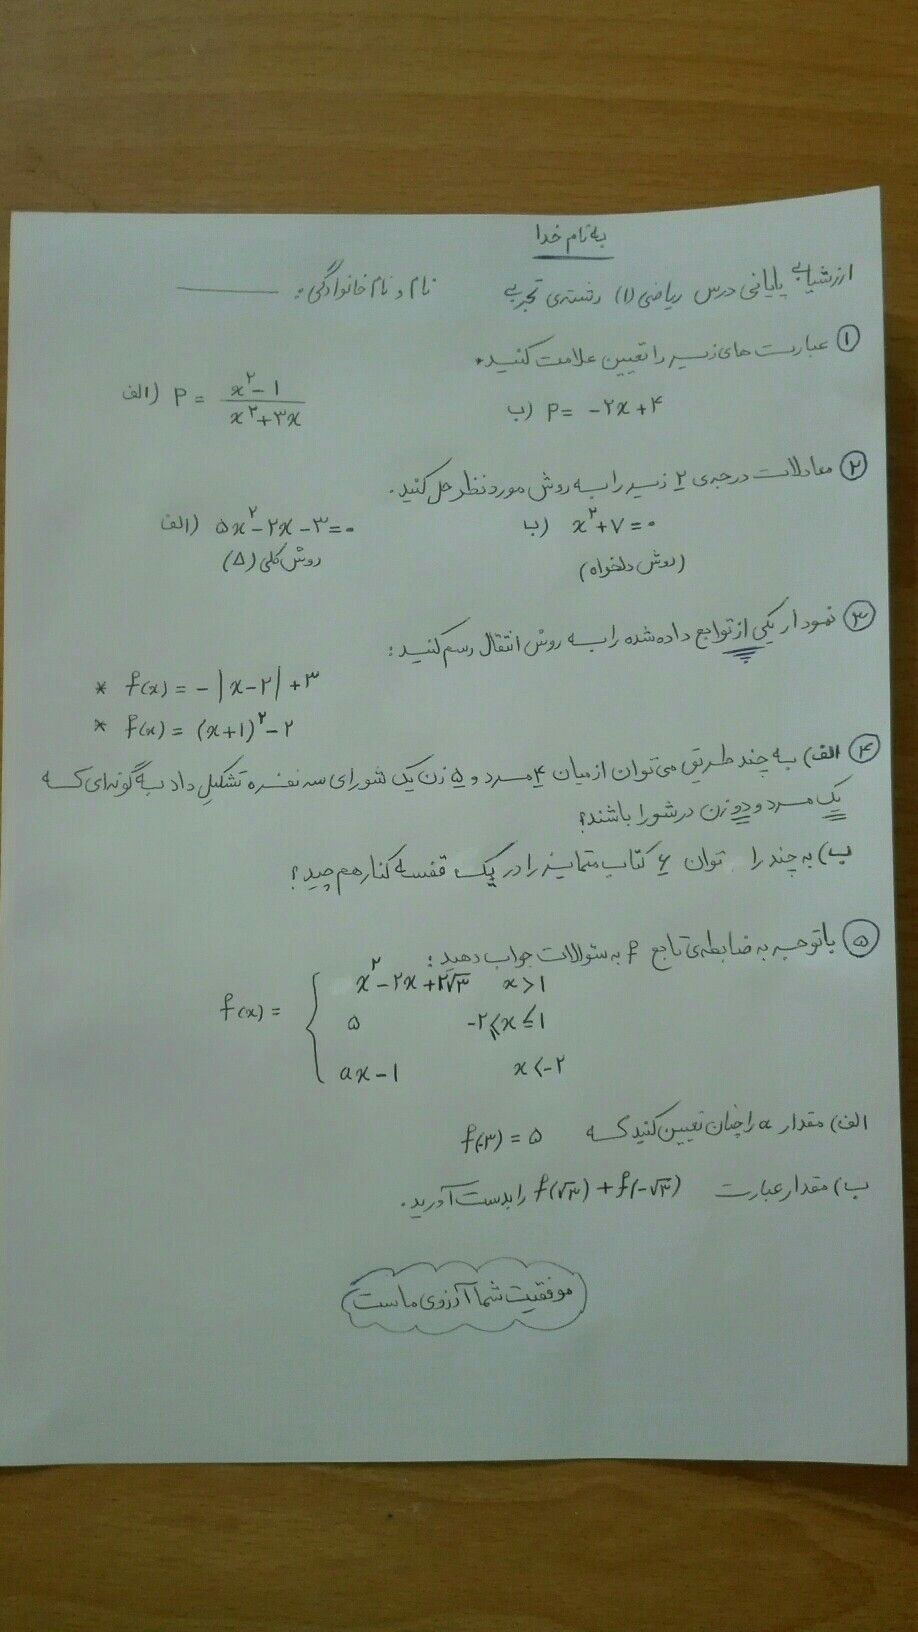 به نام خدا
ارزشیابی پایانی درس ریاضی (۱) رشته‌ی تجربی نام و نام خانوادگی: ______
① عبارت های زیر را تعیین علامت کنید.
الف) P = (x² - 1) / (x² + ۳x) ب) P = -۲x + ۴
② معادلات درجه‌ی ۲ زیر را به روش مورد نظر حل کنید.
الف) ۵x² - ۲x - ۳ = ۰ ب) x² + ۷ = ۰
روش کلی (Δ) (روش دلخواه)
③ نمودار یکی از توابع داده شده را به روش انتقال رسم کنید:
* f(x) = -|x - ۲| + ۳
* f(x) = (x + 1)² - ۲
④ الف) به چند طریق می توان از میان ۴ مرد و ۵ زن یک شورای سه نفره تشکیل داد به گونه ای که
یک مرد و دو زن در شورا باشند؟
ب) به چند را توان ۶ کتاب متمایز را در یک قفسه کنار هم چید؟
⑤ با توجه به ضابطه‌ی تابع f به سئوالات جواب دهید:
x² - ۲x + ۲√۳ x > 1
f(x) = { ۵ -۲ ≤ x ≤ 1
ax - 1 x < -۲
الف) مقدار a را چنان تعیین کنید که f(-۳) = ۵
ب) مقدار عبارت f(√۳) + f(-√۳) را بدست آورید.
موفقیت شما آرزوی ماست